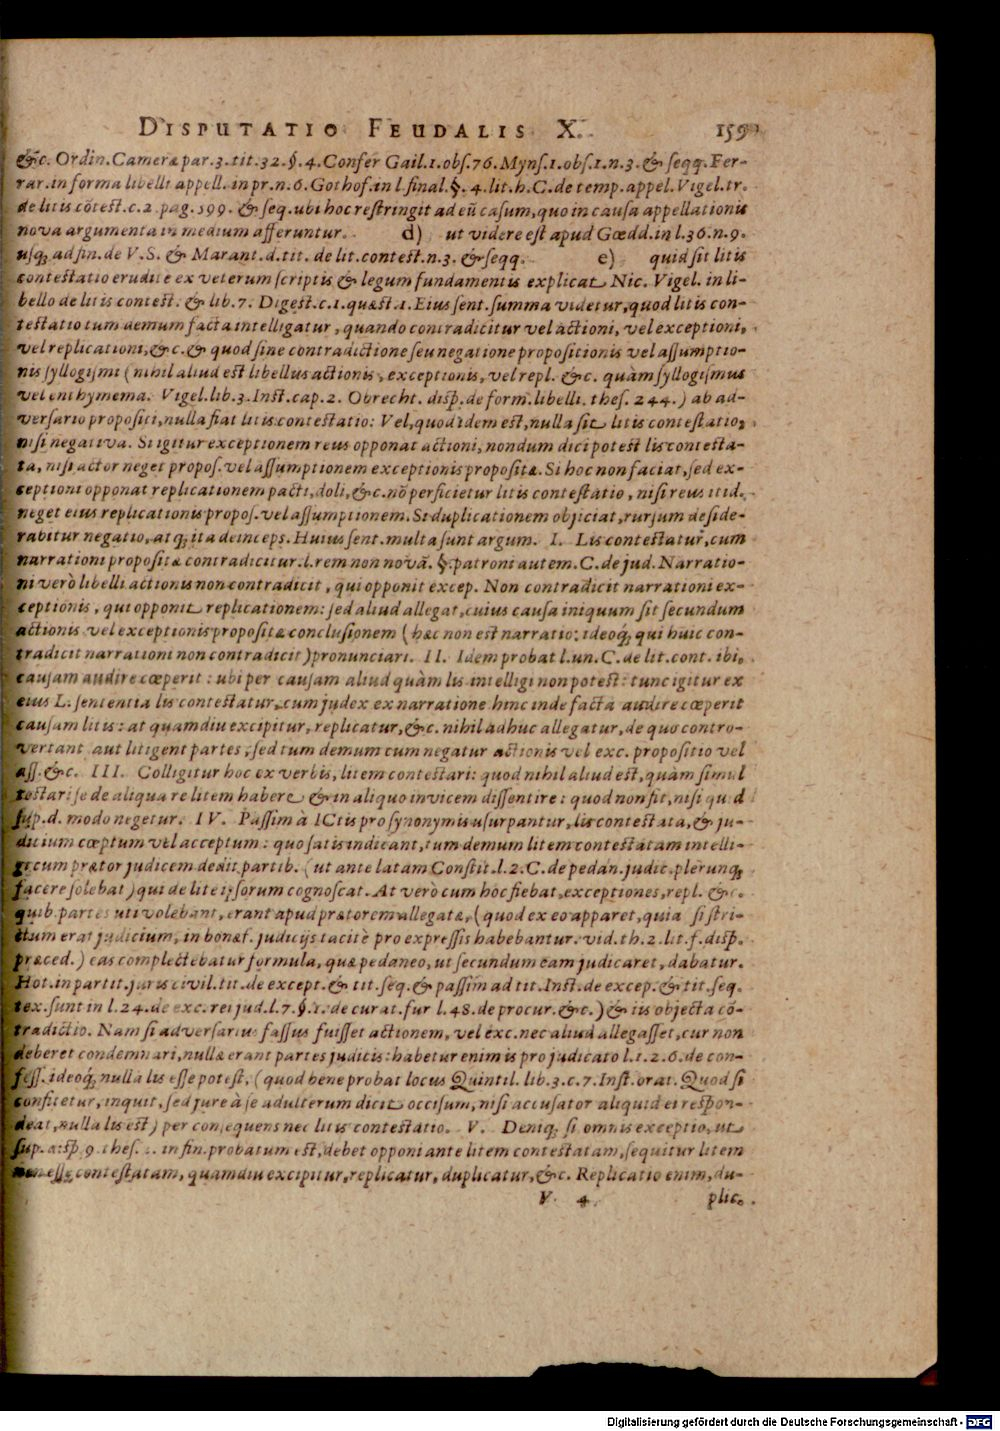 DISPUTATIO FEUDALIS X. 159
&c. Ordin. Cameræ par. 3. tit. 32. §. 4. Confer Gail. 1. obs. 76. Myns. 1. obs. 1. n. 3. & seqq. Fer-
rar. in forma libelli appell. in pr. n. 6. Gothof. in l. final. §. 4. lit. h. C. de temp. appel. Vigel. tr.
de litis cōtest. c. 2. pag. 599. & seq. ubi hoc restringit ad eū casum, quo in causa appellationis
nova argumenta in medium afferuntur. d) ut videre est apud Gœdd. in l. 36. n. 9.
usq; ad fin. de V. S. & Marant. d. tit. de lit. contest. n. 3. & seqq. e) quid sit litis
contestatio erudite ex veterum scriptis & legum fundamentis explicat Nic. Vigel. in li-
bello de litis contest. & lib. 7. Digest. c. 1. quæst. 1. Eius sent. summa videtur, quod litis con-
testatio tum demum facta intelligatur, quando contradicitur vel actioni, vel exceptioni,
vel replicationi, &c. & quod sine contradictione seu negatione propositionis vel assumptio-
nis syllogismi (nihil aliud est libellus actionis, exceptionis, vel repl. &c. quàm syllogismus
vel enthymema. Vigel. lib. 3. Inst. cap. 2. Obrecht. disp. de form. libelli. thes. 244.) ab ad-
versario propositi, nulla fiat litis contestatio: Vel, quod idem est, nulla sit litis contestatio,
nisi negativa. Si igitur exceptionem reus opponat actioni, nondum dici potest lis contesta-
ta, nisi actor neget propos. vel assumptionem exceptionis propositæ. Si hoc non faciat, sed ex-
ceptioni opponat replicationem pacti, doli, &c. nō perficietur litis contestatio, nisi reus itid.
neget eius replicationis propos. vel assumptionem. Si duplicationem objiciat, rursum deside-
rabitur negatio, atq; ita deinceps. Huius sent. multa sunt argum. I. Lis contestatur, cum
narrationi propositæ contradicitur. l. rem non novā. §. patroni autem. C. de jud. Narratio-
ni verò libelli actionis non contradicit, qui opponit excep. Non contradicit narrationi ex-
ceptionis, qui opponit replicationem: sed aliud allegat, cuius causa iniquum sit secundum
actionis vel exceptionis propositæ conclusionem (hæc non est narratio: ideoq; qui huic con-
tradicit narrationi non contradicit) pronunciari. II. Idem probat l. un. C. de lit. cont. ibi,
causam audire cœperit: ubi per causam aliud quàm lis intelligi non potest: tunc igitur ex
eius L. sententia lis contestatur, cum judex ex narratione hinc inde facta audire cœperit
causam litis: at quamdiu excipitur, replicatur, &c. nihil adhuc allegatur, de quo contro-
vertant aut litigent partes, sed tum demum cum negatur actionis vel exc. propositio vel
ass. &c. III. Colligitur hoc ex verbis, litem contestari: quod nihil aliud est, quàm simul
testari se de aliqua re litem habere & in aliquo invicem dissentire: quod non fit, nisi quid
sup. d. modo negetur. IV. Passim à ICtis pro synonymis usurpantur, lis contestata, & ju-
dicium cœptum vel acceptum: quo satis indicant, tum demum litem contestatam intelli-
gi cum prætor judicem dedit partib. (ut ante latam Constit. l. 2. C. de pedan. judic. plerunq;
facere solebat) qui de lite ipsorum cognoscat. At verò cum hoc fiebat, exceptiones, repl. &c.
quib. partes uti volebant, erant apud prætorem allegatæ, (quod ex eo apparet, quia si stri-
ctum erat judicium, in bonæ f. judicijs tacitè pro expressis habebantur. vid. th. 2. lit. f. disp.
præced.) eas complectebatur formula, quæ pedaneo, ut secundum eam judicaret, dabatur.
Hot. in partit. juris civil. tit. de except. & tit. seq. & passim ad tit. Inst. de excep. & tit. seq.
tex. sunt in l. 24. de exc. rei jud. l. 7. §. 1. de curat. fur l. 48. de procur. &c.) & iis objecta cō-
tradictio. Nam si adversarius fassus fuisset actionem, vel exc. nec aliud allegasset, cur non
deberet condemnari, nullæ erant partes judicis: habetur enim is pro judicato l. 1. 2. 6. de con-
fess. ideoq; nulla lis esse potest, (quod bene probat locus Quintil. lib. 3. c. 7. Inst. orat. Quod si
confitetur, inquit, sed jure à se adulterum dicit occisum, nisi accusator aliquid ei respon-
deat, nulla lis est) per consequens nec litis contestatio. V. Deniq; si omnis exceptio, ut
sup. disp. 9. thes. in fin. probatum est, debet opponi ante litem contestatam, sequitur litem
non esse contestatam, quamdiu excipitur, replicatur, duplicatur, &c. Replicatio enim, du-
V 4 plic.
Digitalisierung gefördert durch die Deutsche Forschungsgemeinschaft - DFG